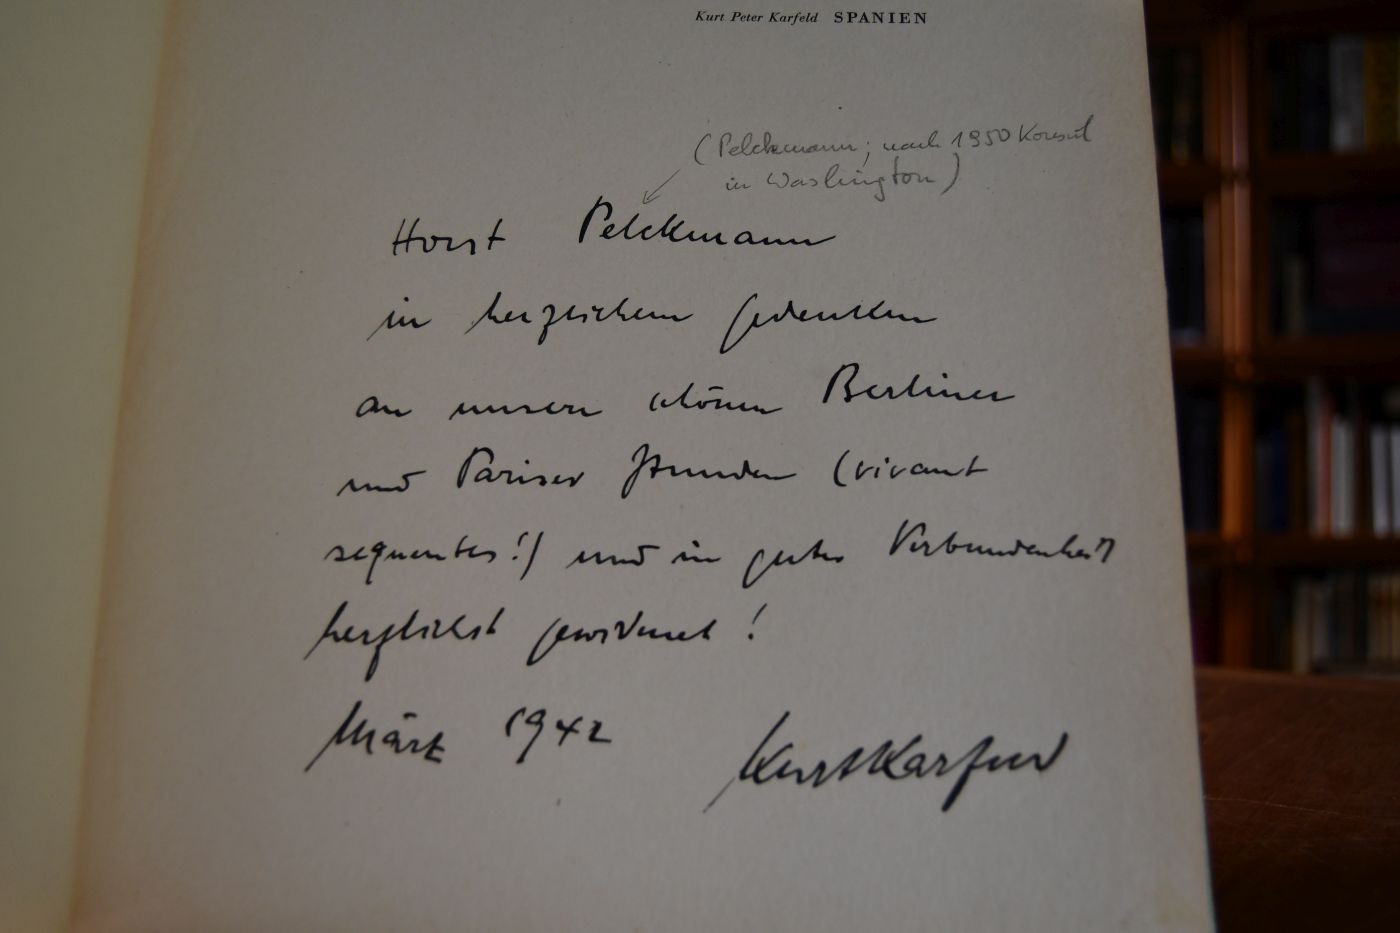 Kurt Peter Karfeld SPANIEN
(Pelckmann; nach 1950 Konsul
in Washington)
Horst Pelckmann
in herzlichem Gedenken
an unsere schönen Berliner
und Pariser Stunden (vivant
sequentes!) und in guter Verbundenheit
herzlichst gewidmet!
März 1942 Kurt Karfeld